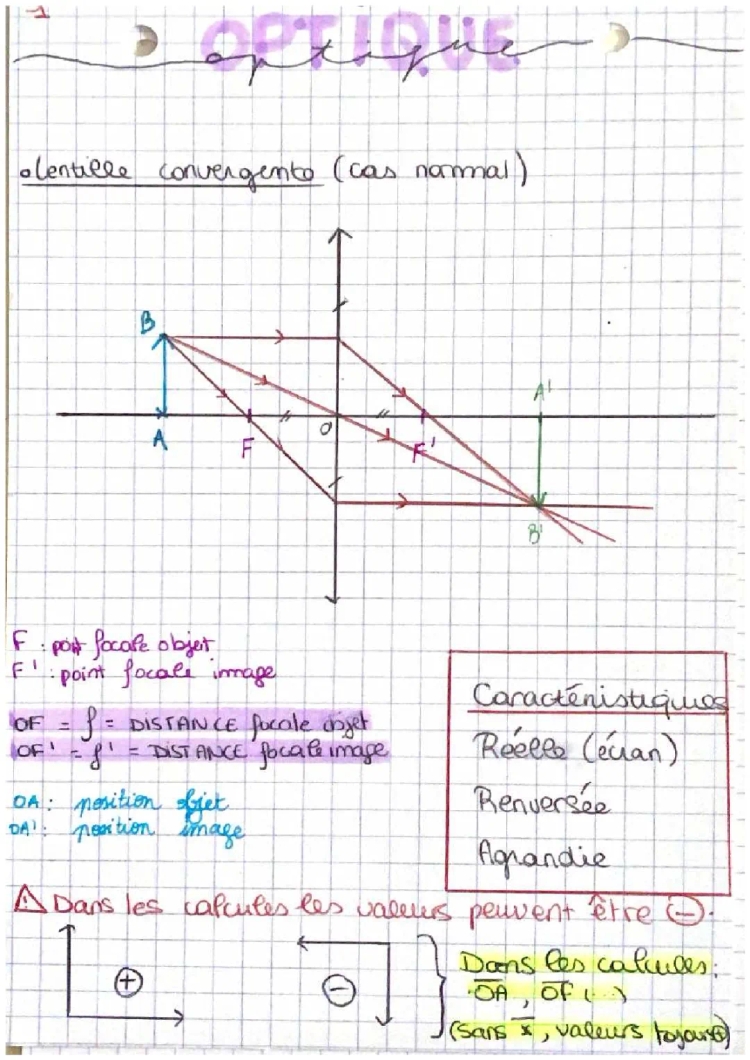 1
OPTIQUE
optique
Lentille convergente (cas normal)
B
A'
A
F
O
F'
B'
F : point focale objet
F' : point focale image
OF = f = DISTANCE focale objet
OF' = f' = DISTANCE focale image
OA : position objet
OA' : position image
Caractéristiques
Réelle (écran)
Renversée
Agrandie
⚠ Dans les calcules les valeurs peuvent être ⊖.
⊕
⊖
Dans les calcules :
O̅A̅, O̅F̅ (...)
(sans x̅, valeurs tojours ⊕)